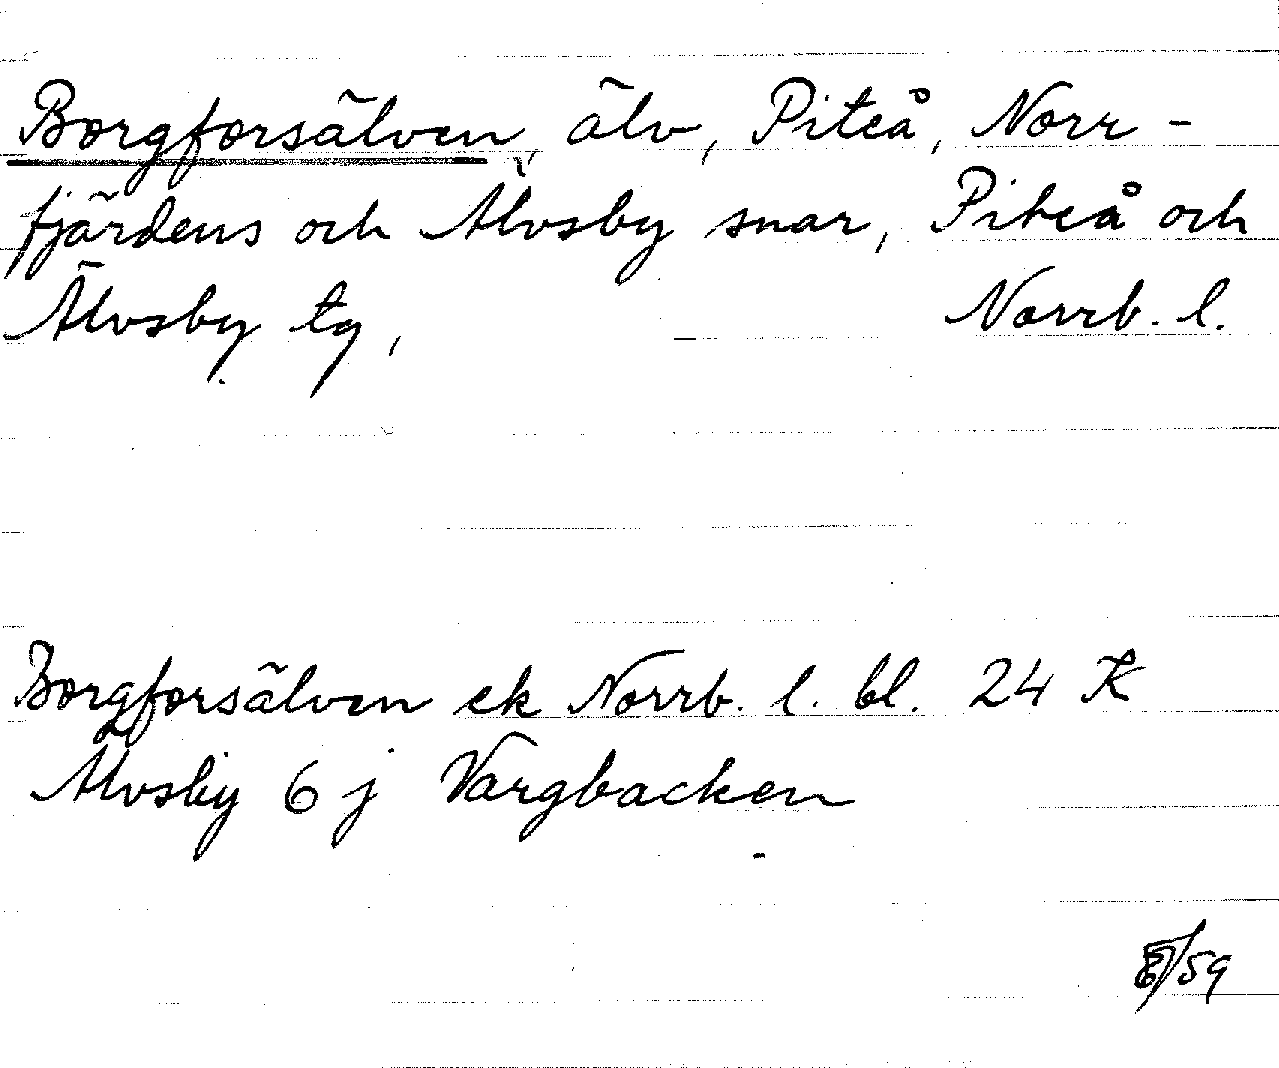 Borgforsälven, älv, Piteå, Norr-
fjärdens och Älvsby snar, Piteå och
Älvsby tg, Norrb. l.
Borgforsälven ek Norrb. l. bl. 24 K
Älvsby 6 j Vargbacken
/59